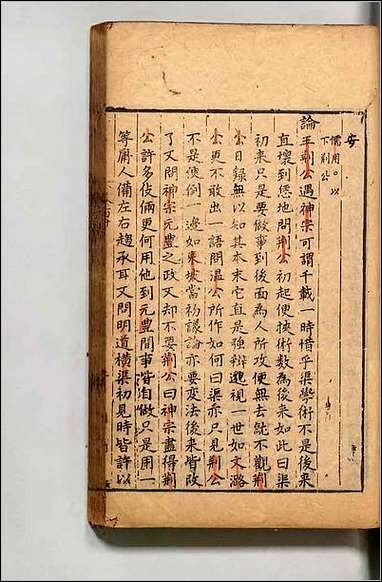 儒用○以
下荊公
論王荊公遇神宗可謂千載一時惜乎渠學術不是後來
直壞到恁地問荊公初起便挾術數為後來如此曰渠
初來只是要做事到後面為人所攻便無去就不觀荊
公日錄無以知其本末它直是強辯邈視一世如文潞
公更不敢出一語問溫公所作如何曰渠亦只見荊公
不是便倒一邊如東坡當初議論亦要變法後來皆改
了又問神宗元豐之政又却不要荊公曰神宗盡得荊
公許多伎倆更何用他到元豐間事皆自做只是用一
等庸人備左右趨承耳又問明道橫渠初見時皆許以